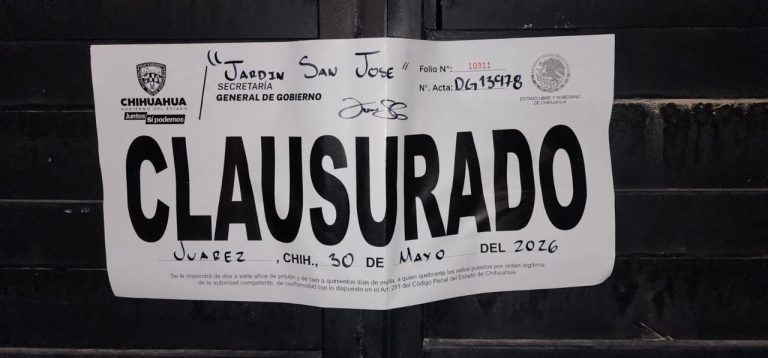 "JARDIN SAN JOSE"
CHIHUAHUA
GOBIERNO DEL ESTADO
Juntos Sí podemos
SECRETARÍA
GENERAL DE GOBIERNO
Folio N°: 10311
N°. Acta: DG13978
ESTADO LIBRE Y SOBERANO
DE CHIHUAHUA
CLAUSURADO
JUAREZ, CHIH., 30 DE MAYO DEL 2026
Se le impondrá de dos a siete años de prisión y de cien a quinientos días de multa, a quien quebrante los sellos puestos por orden legítima
de la autoridad competente, de conformidad con lo dispuesto en el Art. 291 del Código Penal del Estado de Chihuahua.